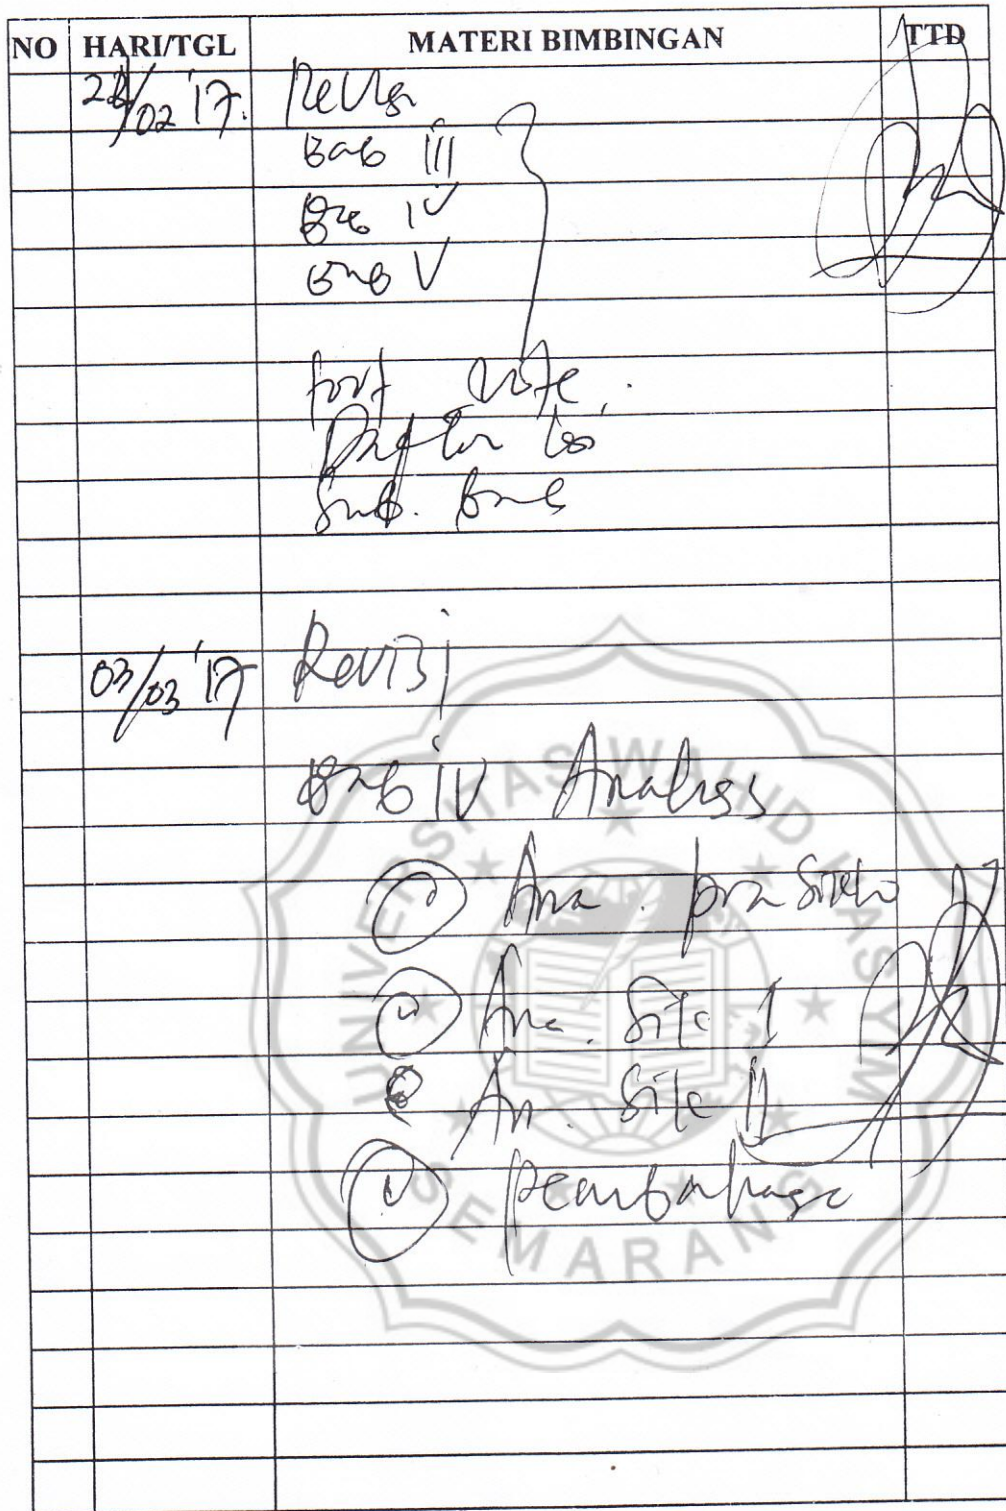 NO HARI/TGL MATERI BIMBINGAN TTD
/02 '17. Revisi
Bab III
Bab IV
Bab V
foot note.
Daftar Isi
Sub. Bab
03/03 '17 Revisi
Bab IV Analisis
Ana. pra siklus
Ana. Sikl I
An. Sikl II
Pembahasa
UNIVERSITAS WAHID HASYIM
SEMARANG